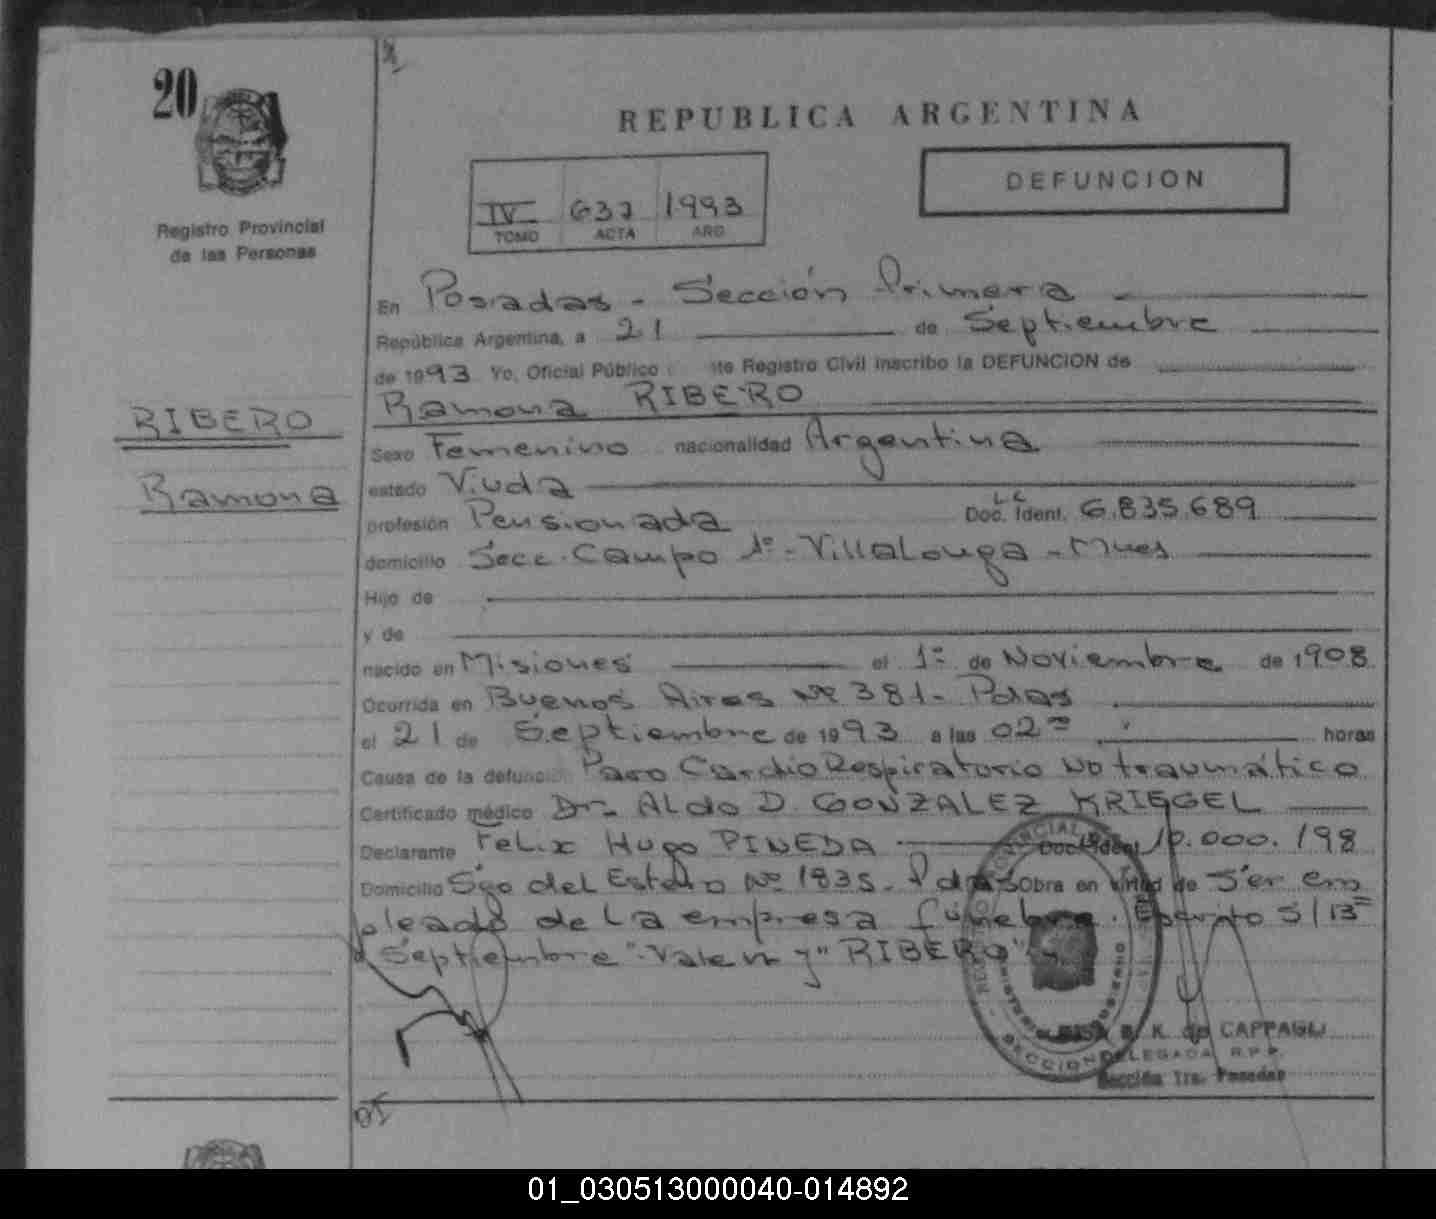 20
REPUBLICA ARGENTINA
DEFUNCION
IV 637 1993
TOMO ACTA AÑO
Registro Provincial
de las Personas
En Posadas - Sección Primera
República Argentina, a 21 de Septiembre
de 1993 Yo, Oficial Público Registro Civil inscribo la DEFUNCION de
Ramona RIBERO
RIBERO
Ramona
Sexo Femenino nacionalidad Argentina
estado Viuda
profesión Pensionada L C Doc. Ident. 6.835.689
domicilio Secc. Campo 1º - Villalonga - Mnes
Hijo de
y de
nacido en Misiones el 1º de Noviembre de 1908
Ocurrida en Buenos Aires Nº 381 - Pdas
el 21 de Septiembre de 1993 a las 02 horas
Causa de la defunción Paro Cardio Respiratorio No traumático
Certificado médico Dr. Aldo D. GONZALEZ KRIEGEL
Declarante Felix Hugo PINEDA Doc. Ident. 10.000.198
Domicilio Sgo del Estero Nº 1835. Pdas Obra en virtud de Ser em
pleado de la empresa fúnebre. S/B
Septiembre" Valen y "RIBERO"
K. de CAPPAGLI
DELEGADA R.P.P.
Sección 1ra. Posadas
01_030513000040-014892